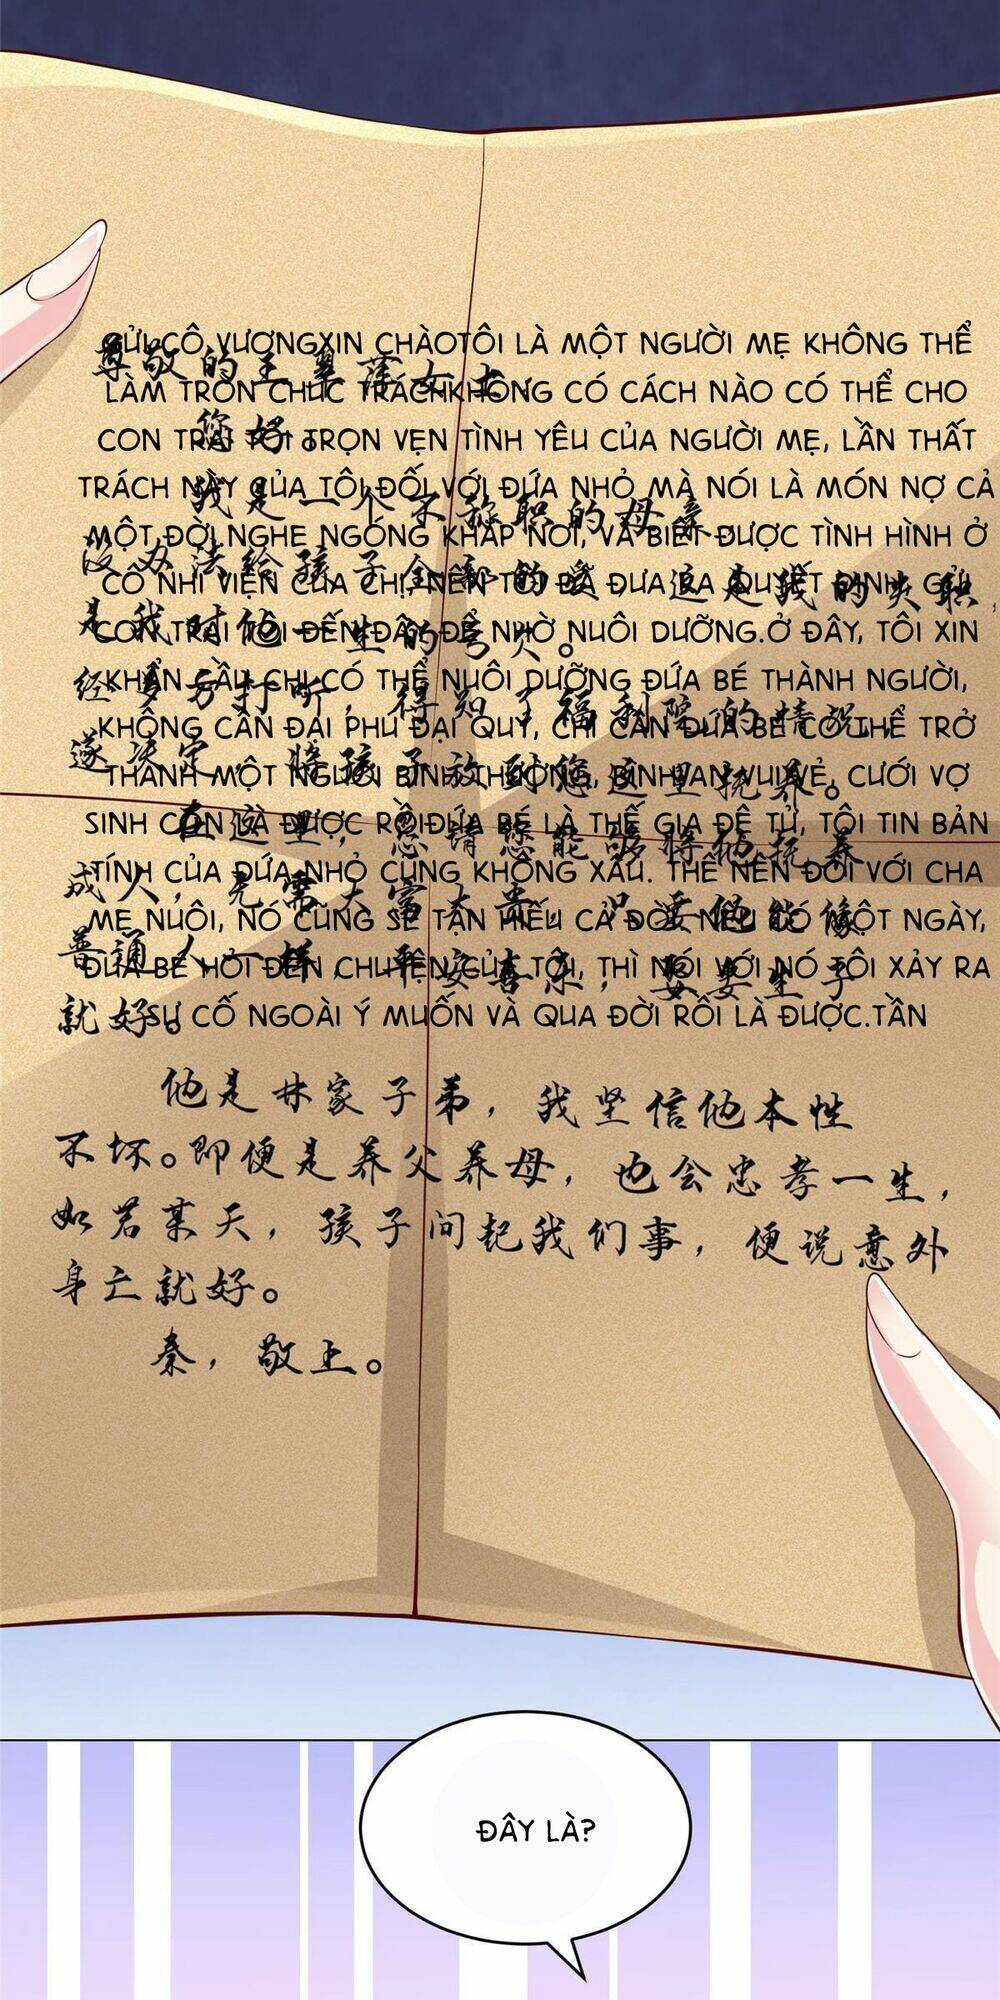 GỬI CÔ VƯƠNGXIN CHÀOTÔI LÀ MỘT NGƯỜI MẸ KHÔNG THỂ
LÀM TRÒN CHỨC TRÁCHKHÔNG CÓ CÁCH NÀO CÓ THỂ CHO
CON TRAI TÔI TRỌN VẸN TÌNH YÊU CỦA NGƯỜI MẸ, LẦN THẤT
TRÁCH NÀY CỦA TÔI ĐỐI VỚI ĐỨA NHỎ MÀ NÓI LÀ MÓN NỢ CẢ
MỘT ĐỜI.NGHE NGÓNG KHẮP NƠI, VÀ BIẾT ĐƯỢC TÌNH HÌNH Ở
CÔ NHI VIỆN CỦA CHỊ, NÊN TÔI ĐÃ ĐƯA RA QUYẾT ĐỊNH GỬI
CON TRAI TÔI ĐẾN ĐÂY ĐỂ NHỜ NUÔI DƯỠNG.Ở ĐÂY, TÔI XIN
KHẨN CẦU CHỊ CÓ THỂ NUÔI DƯỠNG ĐỨA BÉ THÀNH NGƯỜI,
KHÔNG CẦN ĐẠI PHÚ ĐẠI QUÝ, CHỈ CẦN ĐỨA BÉ CÓ THỂ TRỞ
THÀNH MỘT NGƯỜI BÌNH THƯỜNG, BÌNH AN VUI VẺ, CƯỚI VỢ
SINH CON LÀ ĐƯỢC RỒIĐỨA BÉ LÀ THẾ GIA ĐỆ TỬ, TÔI TIN BẢN
TÍNH CỦA ĐỨA NHỎ CŨNG KHÔNG XẤU. THẾ NÊN ĐỐI VỚI CHA
MẸ NUÔI, NÓ CŨNG SẼ TẬN HIẾU CẢ ĐỜI. NẾU CÓ MỘT NGÀY,
ĐỨA BÉ HỎI ĐẾN CHUYỆN CỦA TÔI, THÌ NÓI VỚI NÓ TÔI XẢY RA
SỰ CỐ NGOÀI Ý MUỐN VÀ QUA ĐỜI RỒI LÀ ĐƯỢC.TẦN
尊敬的王 女士
您好。
我是一个不称职的母亲
没办法给孩子全部的爱，这是我的失职，
是我对他一生的亏欠。
经多方打听，得知了福利院的情况，
遂决定，将孩子放到您这里抚养。
在这里，恳请您能够将他抚养
成人，无需大富大贵，只要他能像
普通人一样，平安喜乐，娶妻生子
就好。
他是林家子弟，我坚信他本性
不坏。即便是养父养母，也会忠孝一生，
如若某天，孩子问起我们事，便说意外
身亡就好。
秦，敬上。
ĐÂY LÀ?